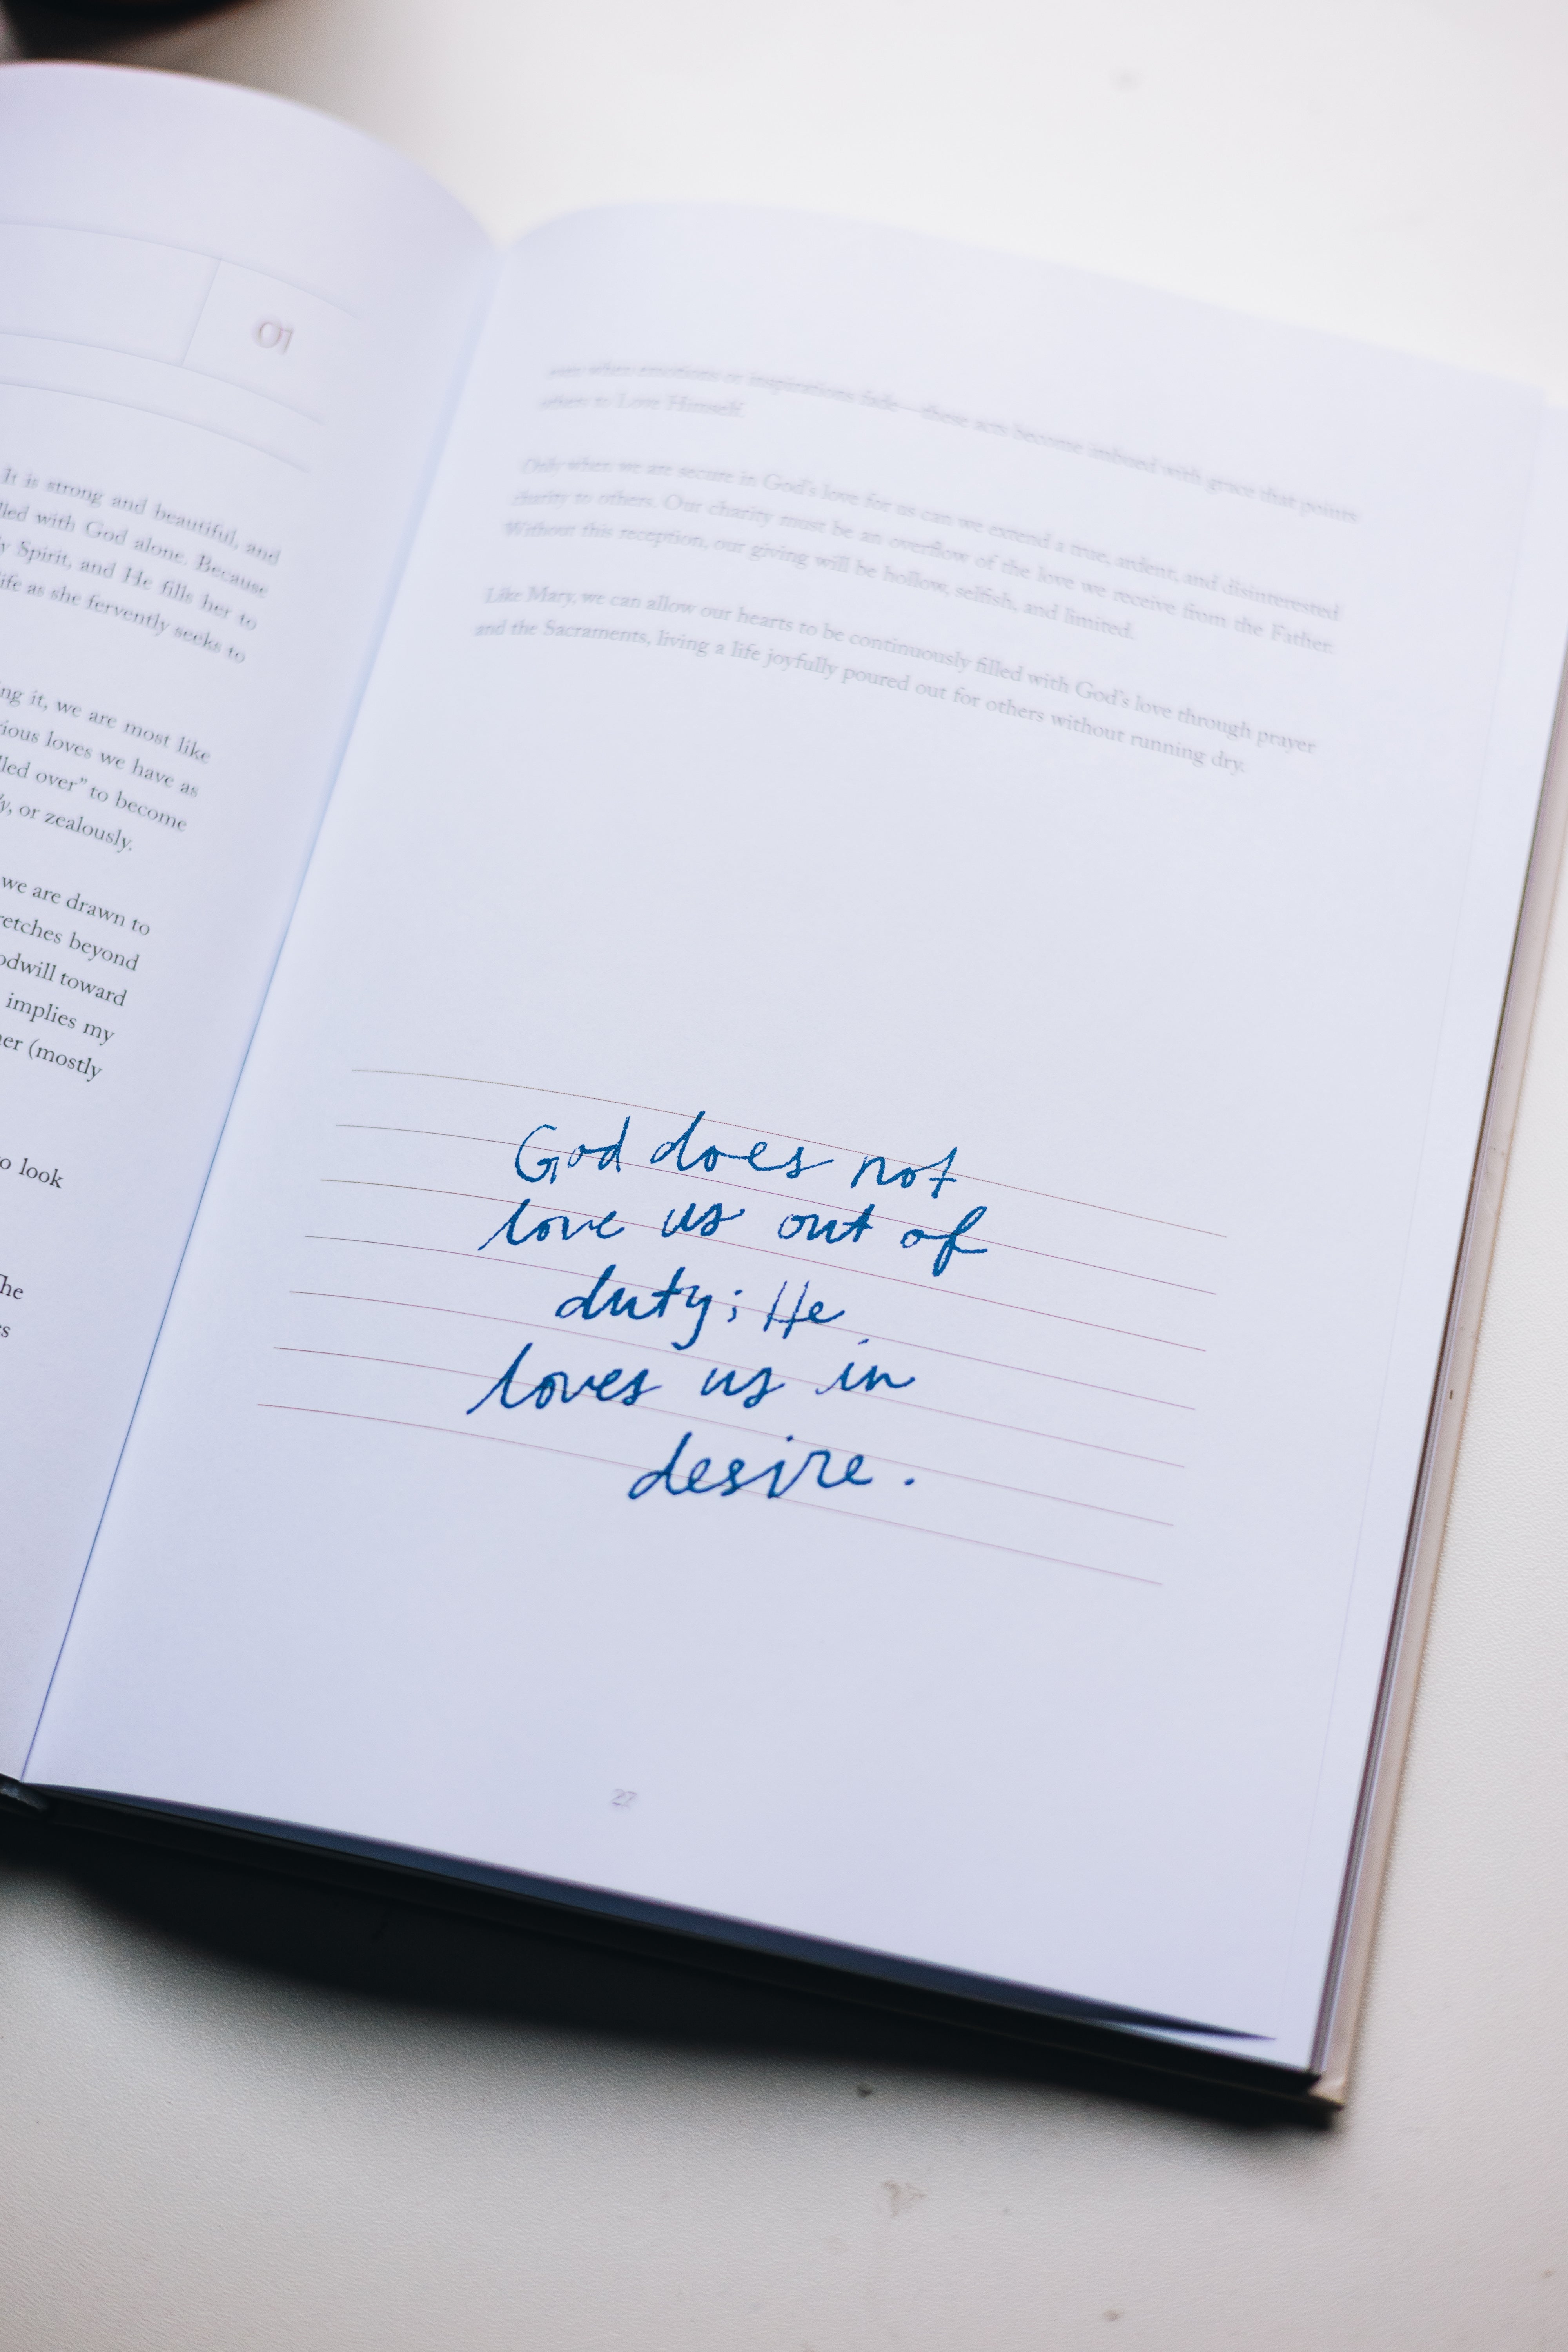 01
It is strong and beautiful, and
lled with God alone. Because
y Spirit, and He fills her to
ife as she fervently seeks to
ng it, we are most like
rious loves we have as
lled over” to become
y, or zealously.
we are drawn to
retches beyond
odwill toward
implies my
her (mostly
o look
The
es
even when emotions or inspirations fade—these acts become imbued with grace that points
others to Love Himself.
Only when we are secure in God’s love for us can we extend a true, ardent, and disinterested
charity to others. Our charity must be an overflow of the love we receive from the Father.
Without this reception, our giving will be hollow, selfish, and limited.
Like Mary, we can allow our hearts to be continuously filled with God’s love through prayer
and the Sacraments, living a life joyfully poured out for others without running dry.
God does not
love us out of
duty; He
loves us in
desire.
27